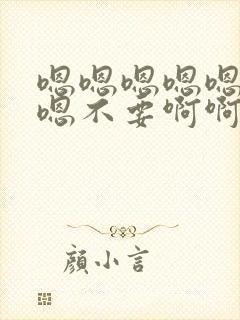 嗯嗯嗯嗯嗯
嗯不要啊啊
顏小言